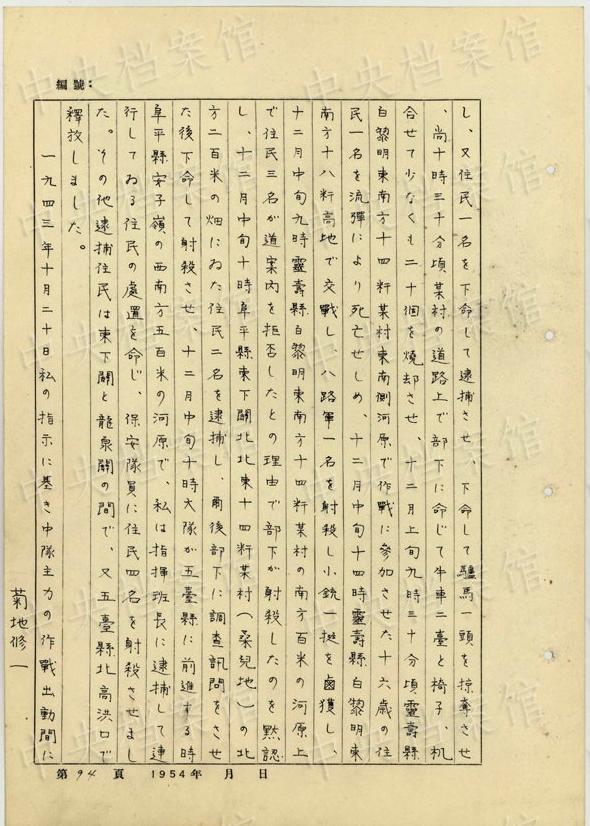 編號：
し、又住民一名を下命して逮捕させ、下命して驢馬一頭を掠奪させ
、尚十時三十分頃某村の道路上で部下に命じて牛車二臺と椅子、机
合せて少なくも二十個を燒却させ、十二月上旬九時三十分頃靈壽縣
白黎明東南方十四粁某村東南側河原で作戰に參加させた十六歳の住
民一名を流彈により死亡せしめ、十二月中旬十四時靈壽縣白黎明東
南方十八粁高地で交戰し、八路軍一名を射殺し小銃一挺を鹵獲し、
十二月中旬九時靈壽縣白黎明東南方十四粁某村の南方百米の河原上
で住民三名が道案內を拒否したとの理由で部下が射殺したのを默認
し、十二月中旬十時阜平縣東下關北北東十四粁某村(桑兒地)の北
方二百米の畑にゐた住民二名を逮捕し、爾後部下に調查訊問をさせ
た後下命して射殺させ、十二月中旬十時大隊が五臺縣に前進する時
阜平縣安子嶺の西南方五百米の河原で、私は指揮班長に逮捕して連
行してゐる住民の處置を命じ、保安隊員に住民四名を射殺させまし
た。その他逮捕住民は東下關と龍泉關の間で、又五臺縣北高洪口で
釋放しました。
一九四三年十月二十日私の指示に基き中隊主力の作戰出動間に
菊地修一
第 94 頁 1954年 月 日
中央档案馆